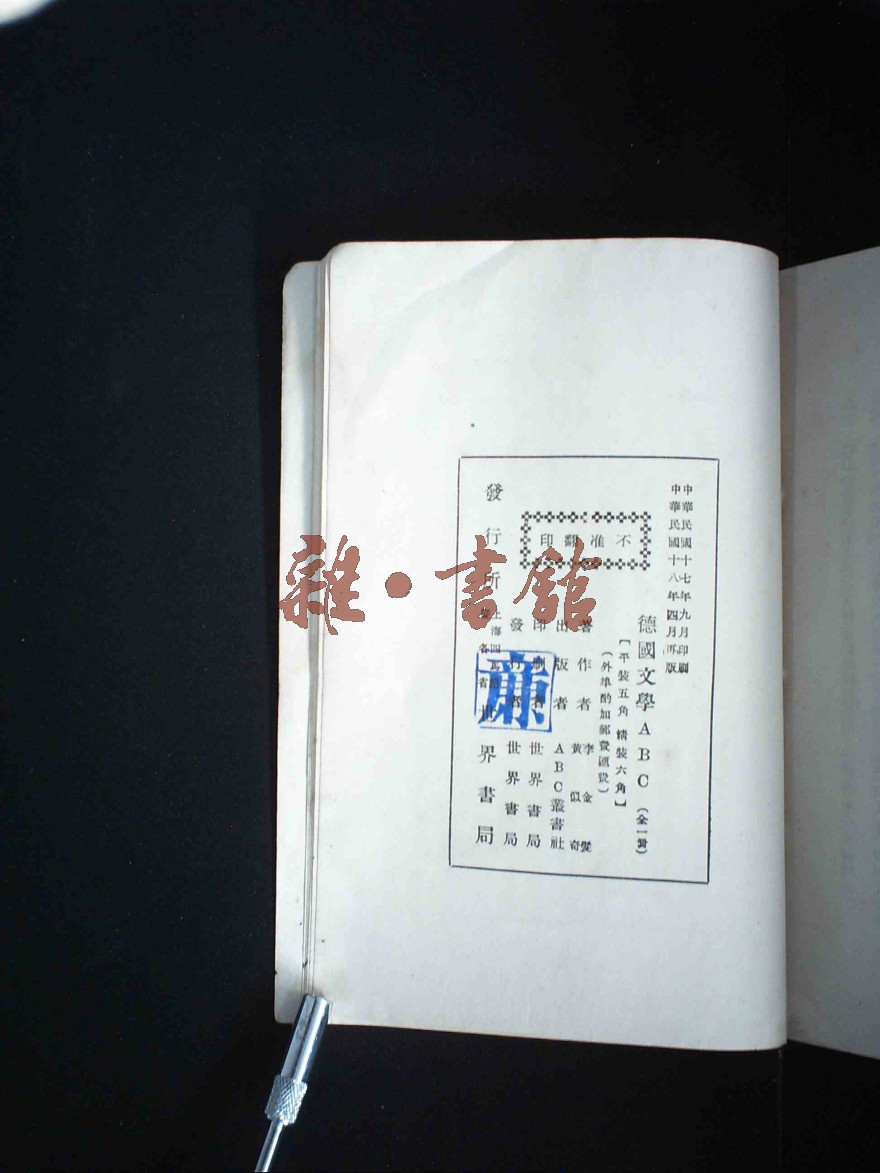 中華民國十七年九月印刷
中華民國十八年四月再版
德國文學ABC（全一冊）
【平裝五角 精裝六角】
（外埠酌加郵費匯費）
不准翻印
著作者 李金髮 黃似奇
出版者 ABC叢書社
印刷者 世界書局
發行者 世界書局
發行所 上海四馬路 各省 世界書局
雜·書館